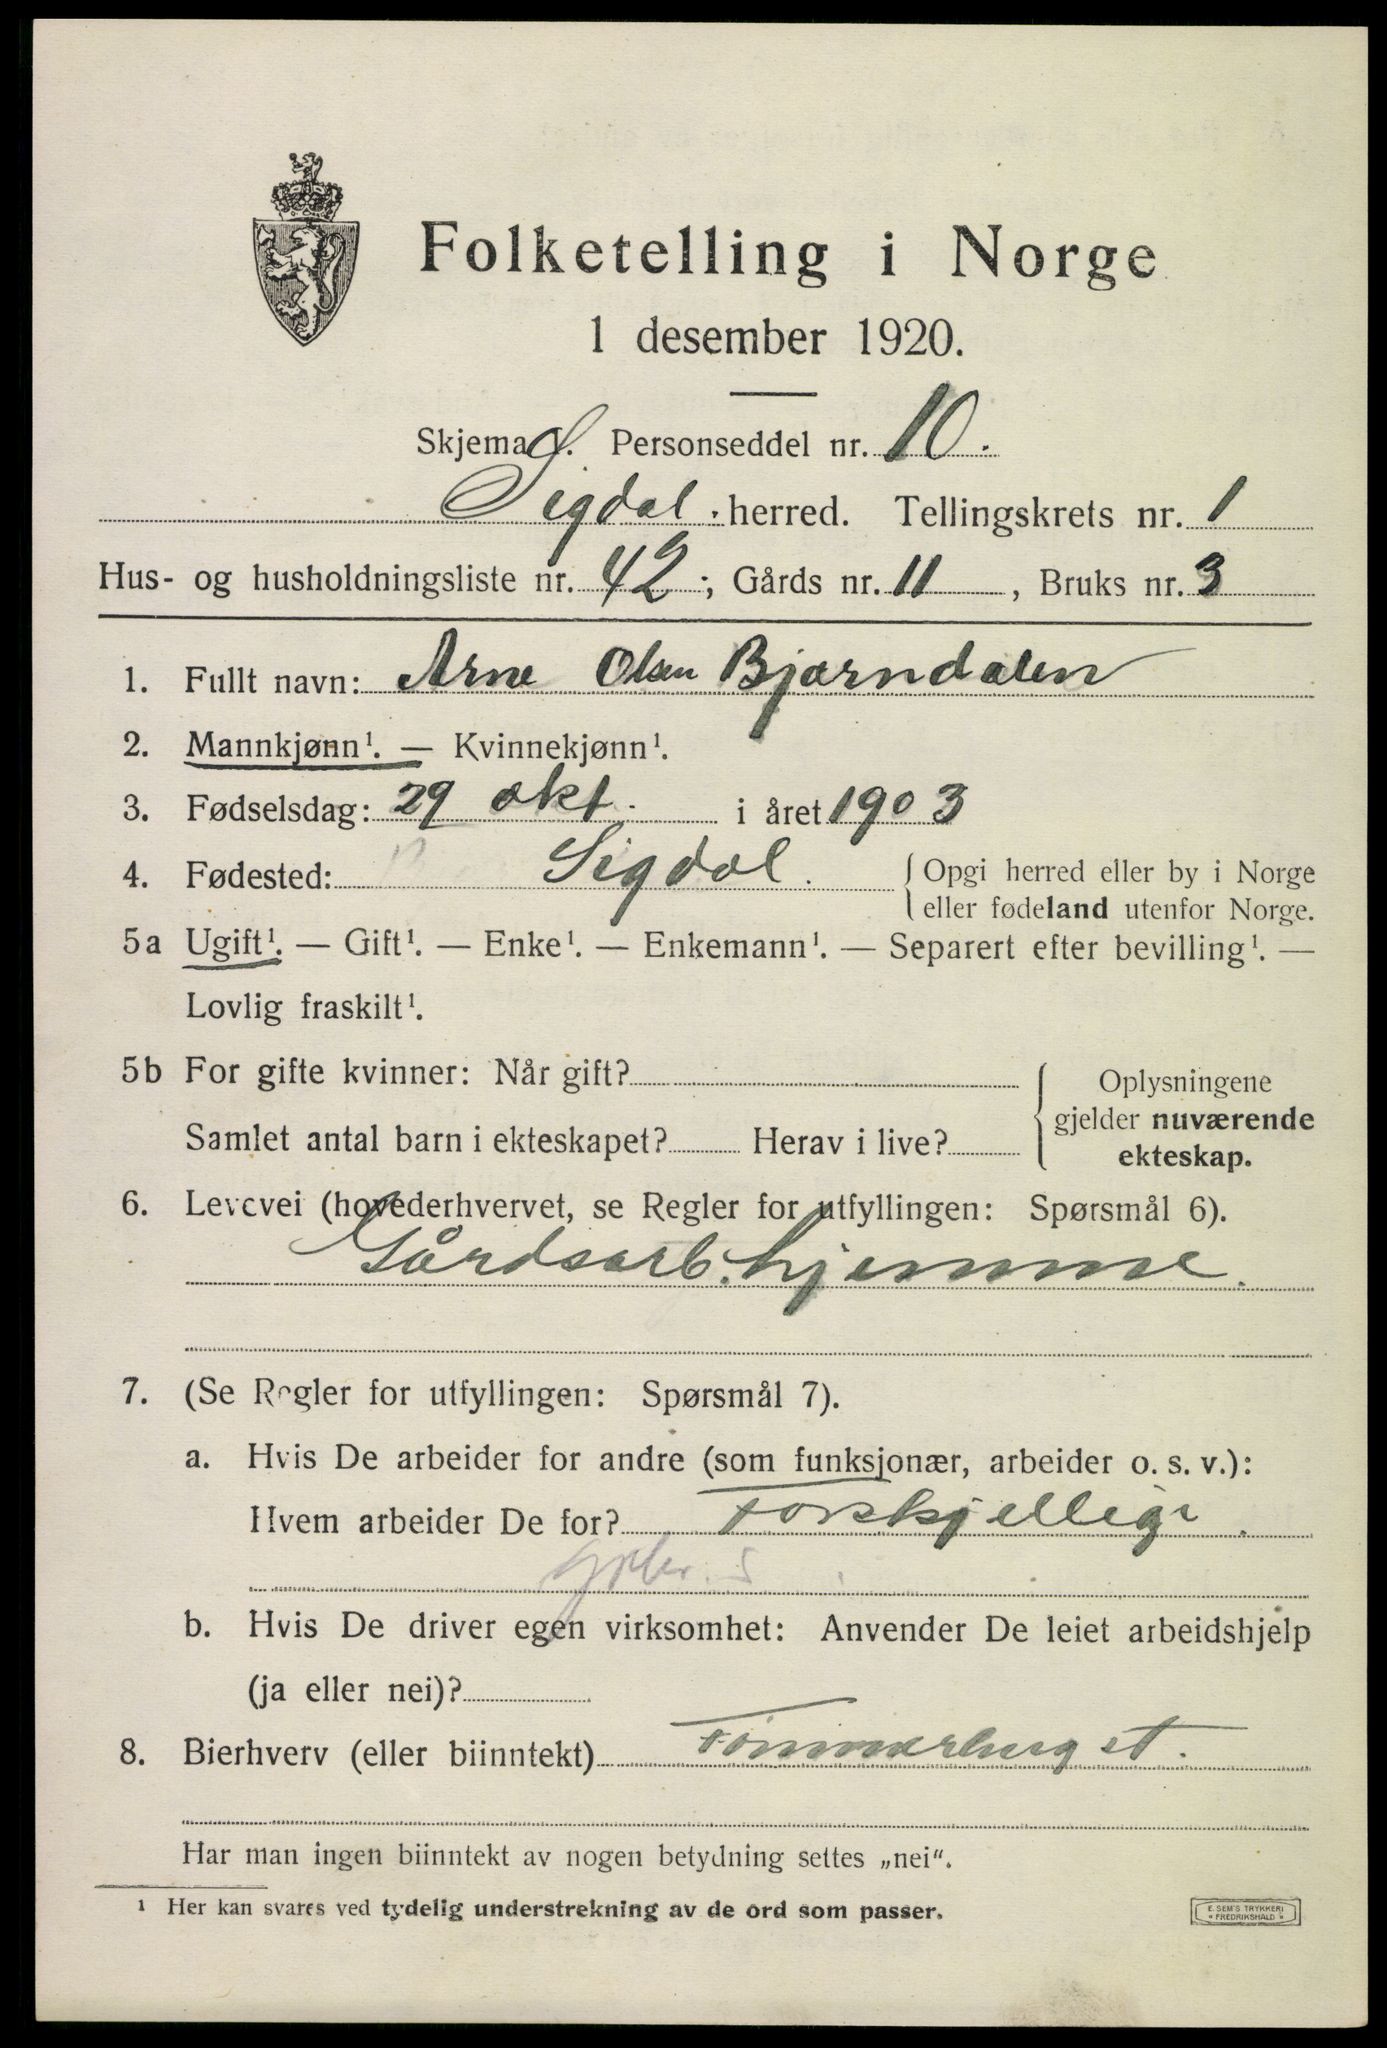 Folketelling i Norge
1 desember 1920.
Skjema Personseddel nr. 10.
Sigdal herred. Tellingskrets nr. 1
Hus- og husholdningsliste nr. 42; Gårds nr. 11, Bruks nr. 3
1. Fullt navn: Arne Olsen Bjørndalen
2. Mannkjønn¹. — Kvinnekjønn¹.
3. Fødselsdag: 29 okt. i året 1903
4. Fødested: Sigdal. {Opgi herred eller by i Norge
eller fødeland utenfor Norge.
5a Ugift¹. — Gift¹. — Enke¹. — Enkemann¹. — Separert efter bevilling¹. —
Lovlig fraskilt¹.
5b For gifte kvinner: Når gift?
Samlet antal barn i ekteskapet? Herav i live?
{Oplysningene
gjelder nuværende
ekteskap.
6. Levevei (hovederhvervet, se Regler for utfyllingen: Spørsmål 6).
Gårdsarb. hjemme.
7. (Se Regler for utfyllingen: Spørsmål 7).
a. Hvis De arbeider for andre (som funksjonær, arbeider o. s. v.):
Hvem arbeider De for? Forskjellige.
b. Hvis De driver egen virksomhet: Anvender De leiet arbeidshjelp
(ja eller nei)?
8. Bierhverv (eller biinntekt) Tømmerhugst.
Har man ingen biinntekt av nogen betydning settes „nei".
¹ Her kan svares ved tydelig understrekning av de ord som passer.
E. SEM'S TRYKKERI
FREDRIKSHALD